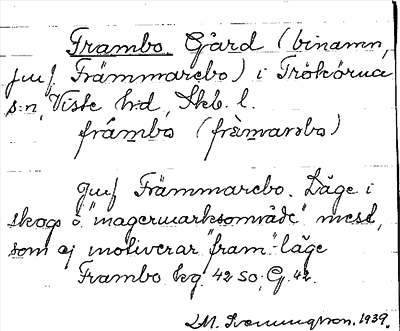 Frambo. Gård (binamn,
jmf. Främmarebo) i Frökinds
s:n, Viste h:d, Skb. l.
fråmbo (fràmarəbo)
Jmf Främmarebo. Läge i
skogs o "magermarksområde" mest,
som ej motiverar "fram"-läge
Frambo kg. 42 SO; G. 42.
1939.